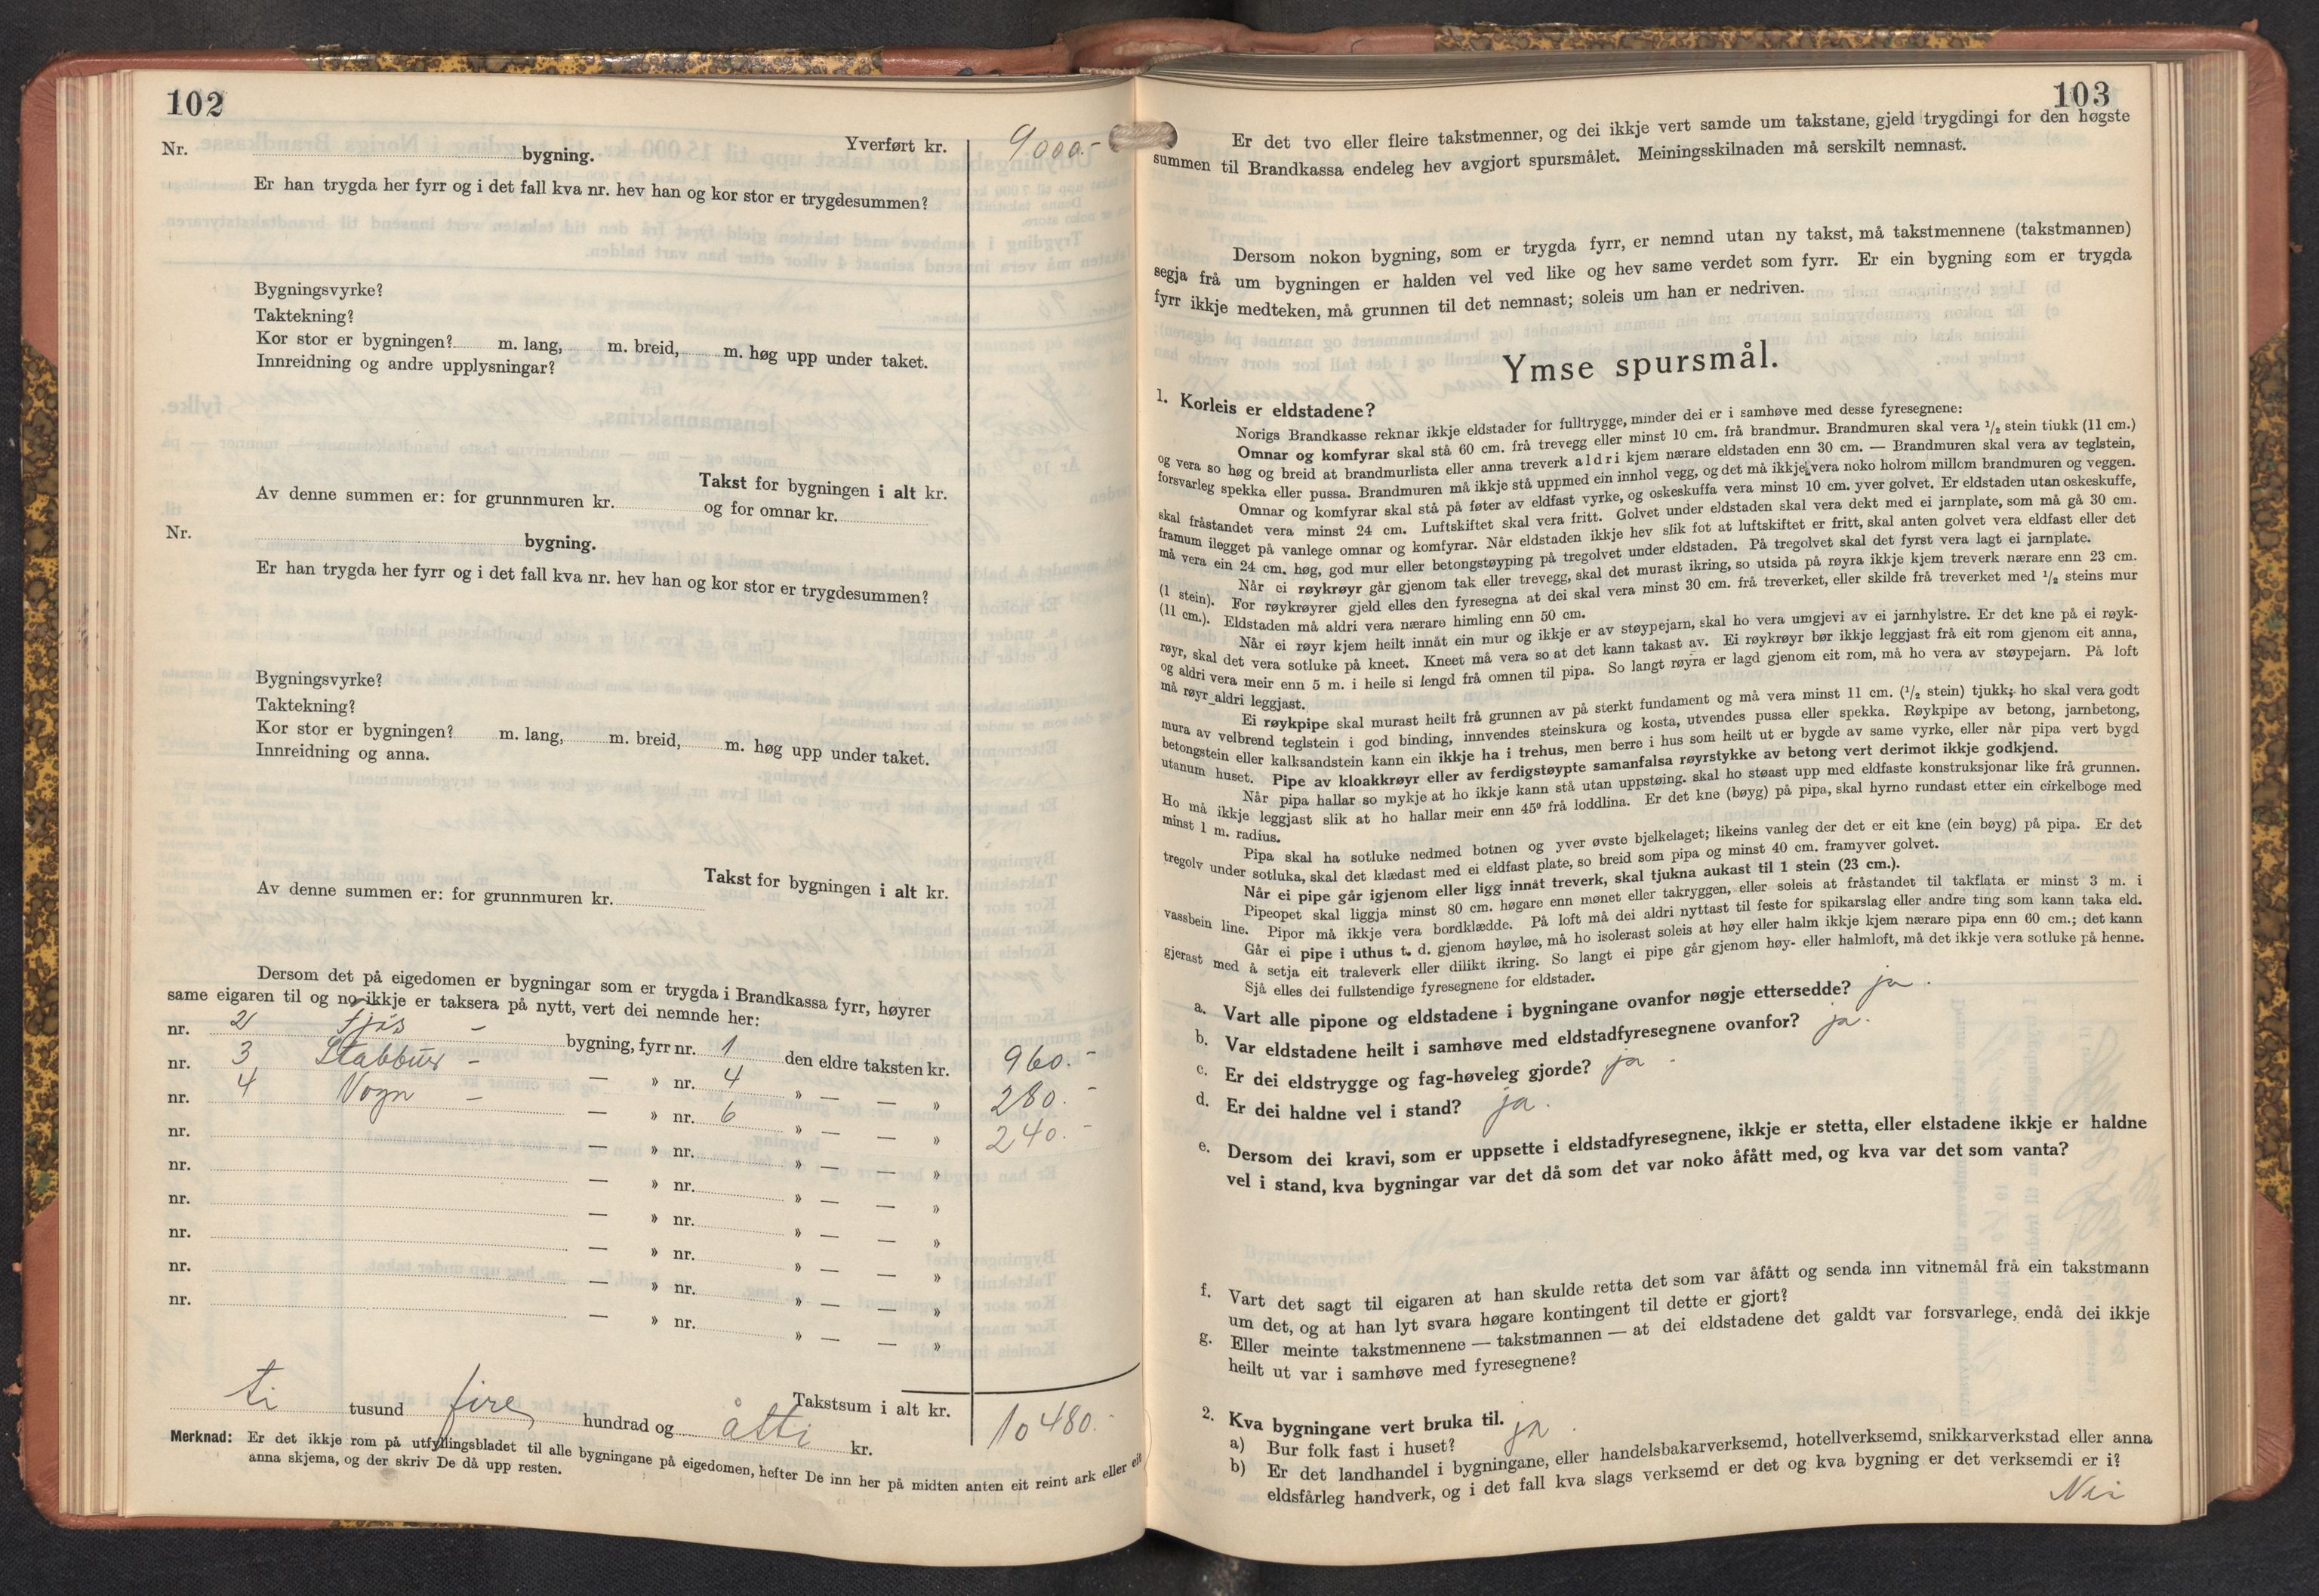 102
Yverført kr. 9000.-
Nr. bygning.
Er han trygda her fyrr og i det fall kva nr. hev han og kor stor er trygdesummen?
Bygningsvyrke?
Taktekning?
Kor stor er bygningen? m. lang, m. breid, m. høg upp under taket.
Innreidning og andre upplysningar?
Takst for bygningen i alt kr.
Av denne summen er: for grunnmuren kr. og for omnar kr.
Nr. bygning.
Er han trygda her fyrr og i det fall kva nr. hev han og kor stor er trygdesummen?
Bygningsvyrke?
Taktekning?
Kor stor er bygningen? m. lang, m. breid, m. høg upp under taket.
Innreidning og anna.
Takst for bygningen i alt kr.
Av denne summen er: for grunnmuren kr.
Dersom det på eigedomen er bygningar som er trygda i Brandkassa fyrr, høyrer
same eigaren til og no ikkje er taksera på nytt, vert dei nemnde her:
nr. 2 Fjøs - bygning, fyrr nr. 1 den eldre taksten kr. 960.-
nr. 3 Stabbur - — » nr. 4 » — — » 280.-
nr. 4 Vogn - — » nr. 6 » — — » 240.-
nr. — » nr. » — — »
nr. — » nr. » — — »
nr. — » nr. » — — »
nr. — » nr. » — — »
nr. — » nr. » — — »
nr. — » nr. » — — »
Takstsum i alt kr. 10480.-
ti tusund fire hundrad og åtti kr.
Merknad: Er det ikkje rom på utfyllingsbladet til alle bygningane på eigedomen, hefter De inn her på midten anten eit reint ark eller eit
anna skjema, og der skriv De då upp resten.
103
Er det tvo eller fleire takstmenner, og dei ikkje vert samde um takstane, gjeld trygdingi for den høgste
summen til Brandkassa endeleg hev avgjort spursmålet. Meiningsskilnaden må serskilt nemnast.
Dersom nokon bygning, som er trygda fyrr, er nemnd utan ny takst, må takstmennene (takstmannen)
segja frå um bygningen er halden vel ved like og hev same verdet som fyrr. Er ein bygning som er trygda
fyrr ikkje medteken, må grunnen til det nemnast; soleis um han er nedriven.
Ymse spursmål.
1. Korleis er eldstadene?
Norigs Brandkasse reknar ikkje eldstader for fulltrygge, minder dei er i samhøve med desse fyresegnene:
Omnar og komfyrar skal stå 60 cm. frå trevegg eller minst 10 cm. frå brandmur. Brandmuren skal vera 1/2 stein tiukk (11 cm.)
og vera so høg og breid at brandmurlista eller anna treverk aldri kjem nærare eldstaden enn 30 cm. — Brandmuren skal vera av teglstein,
forsvarleg spekka eller pussa. Brandmuren må ikkje stå uppmed ein innhol vegg, og det må ikkje vera noko holrom millom brandmuren og veggen.
Omnar og komfyrar skal stå på føter av eldfast vyrke, og oskeskuffa vera minst 10 cm. yver golvet. Er eldstaden utan oskeskuffe,
skal fråstandet vera minst 24 cm. Luftskiftet skal vera fritt. Golvet under eldstaden skal vera dekt med ei jarnplate, som må gå 30 cm.
framum ilegget på vanlege omnar og komfyrar. Når eldstaden ikkje hev slik fot at luftskiftet er fritt, skal anten golvet vera eldfast eller det
må vera ein 24 cm. høg, god mur eller betongstøyping på tregolvet under eldstaden. På tregolvet skal det fyrst vera lagt ei jarnplate.
Når ei røykrøyr går gjenom tak eller trevegg, skal det murast ikring, so utsida på røyra ikkje kjem treverk nærare enn 23 cm.
(1 stein). For røykrøyrer gjeld elles den fyresegna at dei skal vera minst 30 cm. frå treverket, eller skilde frå treverket med 1/2 steins mur
(11 cm.). Eldstaden må aldri vera nærare himling enn 50 cm.
Når ei røyr kjem heilt innåt ein mur og ikkje er av støypejarn, skal ho vera umgjevi av ei jarnhylstre. Er det kne på ei røyk-
røyr, skal det vera sotluke på kneet. Kneet må vera so at det kann takast av. Ei røykrøyr bør ikkje leggjast frå eit rom gjenom eit anna,
og aldri vera meir enn 5 m. i heile si lengd frå omnen til pipa. So langt røyra er lagd gjenom eit rom, må ho vera av støypejarn. På loft
må røyr aldri leggjast.
Ei røykpipe skal murast heilt frå grunnen av på sterkt fundament og må vera minst 11 cm. (1/2 stein) tjukk; ho skal vera godt
mura av velbrend teglstein i god binding, innvendes steinskura og kosta, utvendes pussa eller spekka. Røykpipe av betong, jarnbetong,
betongstein eller kalksandstein kann ein ikkje ha i trehus, men berre i hus som heilt ut er bygde av same vyrke, eller når pipa vert bygd
utanum huset. Pipe av kloakkrøyr eller av ferdigstøypte samanfalsa røyrstykke av betong vert derimot ikkje godkjend.
Når pipa hallar so mykje at ho ikkje kann stå utan uppstøing. skal ho støast upp med eldfaste konstruksjonar like frå grunnen.
Ho må ikkje leggjast slik at ho hallar meir enn 45º frå loddlina. Er det kne (bøyg) på pipa, skal hyrno rundast etter ein cirkelboge med
minst 1 m. radius.
Pipa skal ha sotluke nedmed botnen og yver øvste bjelkelaget; likeins vanleg der det er eit kne (ein bøyg) på pipa. Er det
tregolv under sotluka, skal det klædast med ei eldfast plate, so breid som pipa og minst 40 cm. framyver golvet.
Når ei pipe går igjenom eller ligg innåt treverk, skal tjukna aukast til 1 stein (23 cm.).
Pipeopet skal liggja minst 80 cm. høgare enn mønet eller takryggen, eller soleis at fråstandet til takflata er minst 3 m. i
vassbein line. Pipor må ikkje vera bordklædde. På loft må dei aldri nyttast til feste for spikarslag eller andre ting som kann taka eld.
Går ei pipe i uthus t. d. gjenom høyløe, må ho isolerast soleis at høy eller halm ikkje kjem nærare pipa enn 60 cm.; det kann
gjerast med å setja eit traleverk eller dilikt ikring. So langt ei pipe går gjenom høy- eller halmloft, må det ikkje vera sotluke på henne.
Sjå elles dei fullstendige fyresegnene for eldstader.
a. Vart alle pipone og eldstadene i bygningane ovanfor nøgje ettersedde? ja.
b. Var eldstadene heilt i samhøve med eldstadfyresegnene ovanfor? ja.
c. Er dei eldstrygge og fag-høveleg gjorde? ja
d. Er dei haldne vel i stand? ja.
e. Dersom dei kravi, som er uppsette i eldstadfyresegnene, ikkje er stetta, eller elstadene ikkje er haldne
vel i stand, kva bygningar var det då som det var noko åfått med, og kva var det som vanta?
f. Vart det sagt til eigaren at han skulde retta det som var åfått og senda inn vitnemål frå ein takstmann
um det, og at han lyt svara høgare kontingent til dette er gjort?
g. Eller meinte takstmennene — takstmannen — at dei eldstadene det galdt var forsvarlege, endå dei ikkje
heilt ut var i samhøve med fyresegnene?
2. Kva bygningane vert bruka til.
a) Bur folk fast i huset? ja.
b) Er det landhandel i bygningane, eller handelsbakarverksemd, hotellverksemd, snikkarverkstad eller anna
eldsfårleg handverk, og i det fall kva slags verksemd er det og kva bygning er det verksemdi er i?
Nei